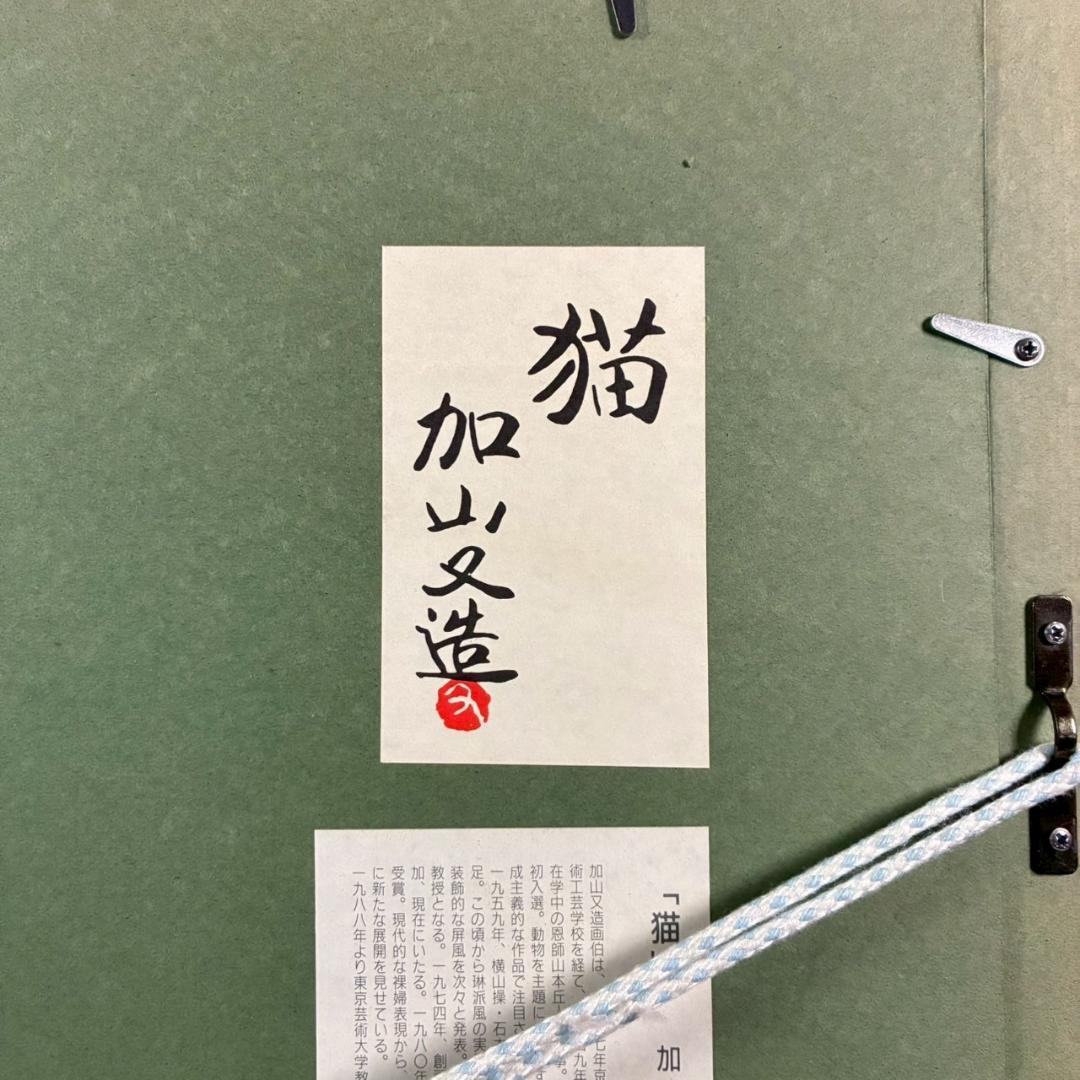 猫
加山又造
又
「猫
加
加山又造画伯は、
七年京
術工芸学校を経て、
九年
在学中の恩師山本丘
事。
初入選。動物を主題に
す
成主義的な作品で注目さ
一九五九年、横山操・石
足。この頃から琳派風の実
装飾的な屏風を次々と発表。
教授となる。一九七四年、創
加、現在にいたる。一九八〇年
受賞。現代的な裸婦表現から、
に新たな展開を見せている。
一九八八年より東京芸術大学教